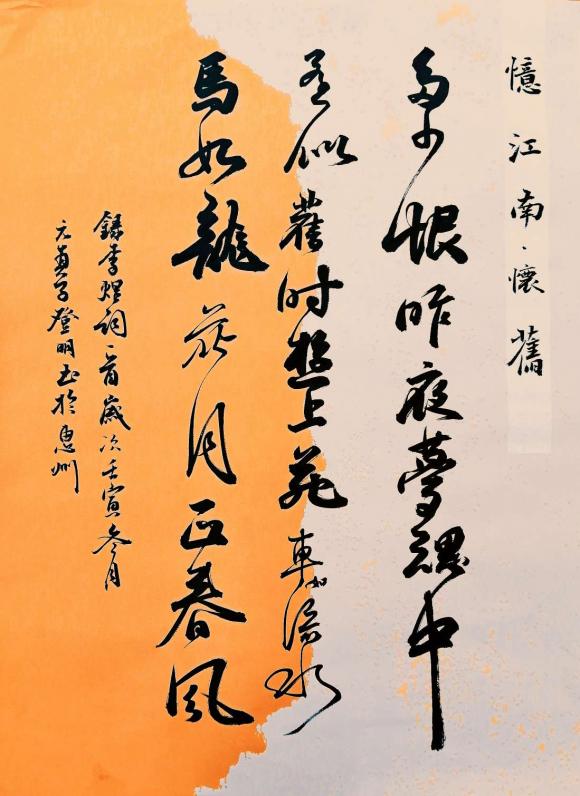 憶江南·懷舊
多少恨昨夜夢魂中
還似舊時遊上苑車如流水
馬如龍花月正春風
錄李煜詞一首歲次壬寅冬月
元真子登明書於惠州